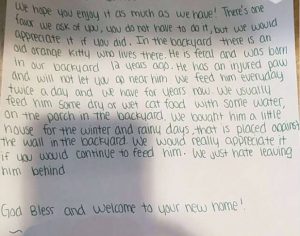 We hope you enjoy it as much as we have! There's one
favor we ask of you, you do not have to do it, but we would
appreciate it if you did. In the backyard there is an
old orange kitty who lives there. He is feral and was born
in our backyard 12 years ago. He has an injured paw
and will not let you go near him. We feed him everyday
twice a day and we have for years now. We usually
feed him some dry or wet cat food with some water,
on the porch in the backyard. We bought him a little
house for the winter and rainy days, that is placed against
the wall in the backyard. We would really appreciate it
if you would continue to feed him. We just hate leaving
him behind
God Bless and welcome to your new home!